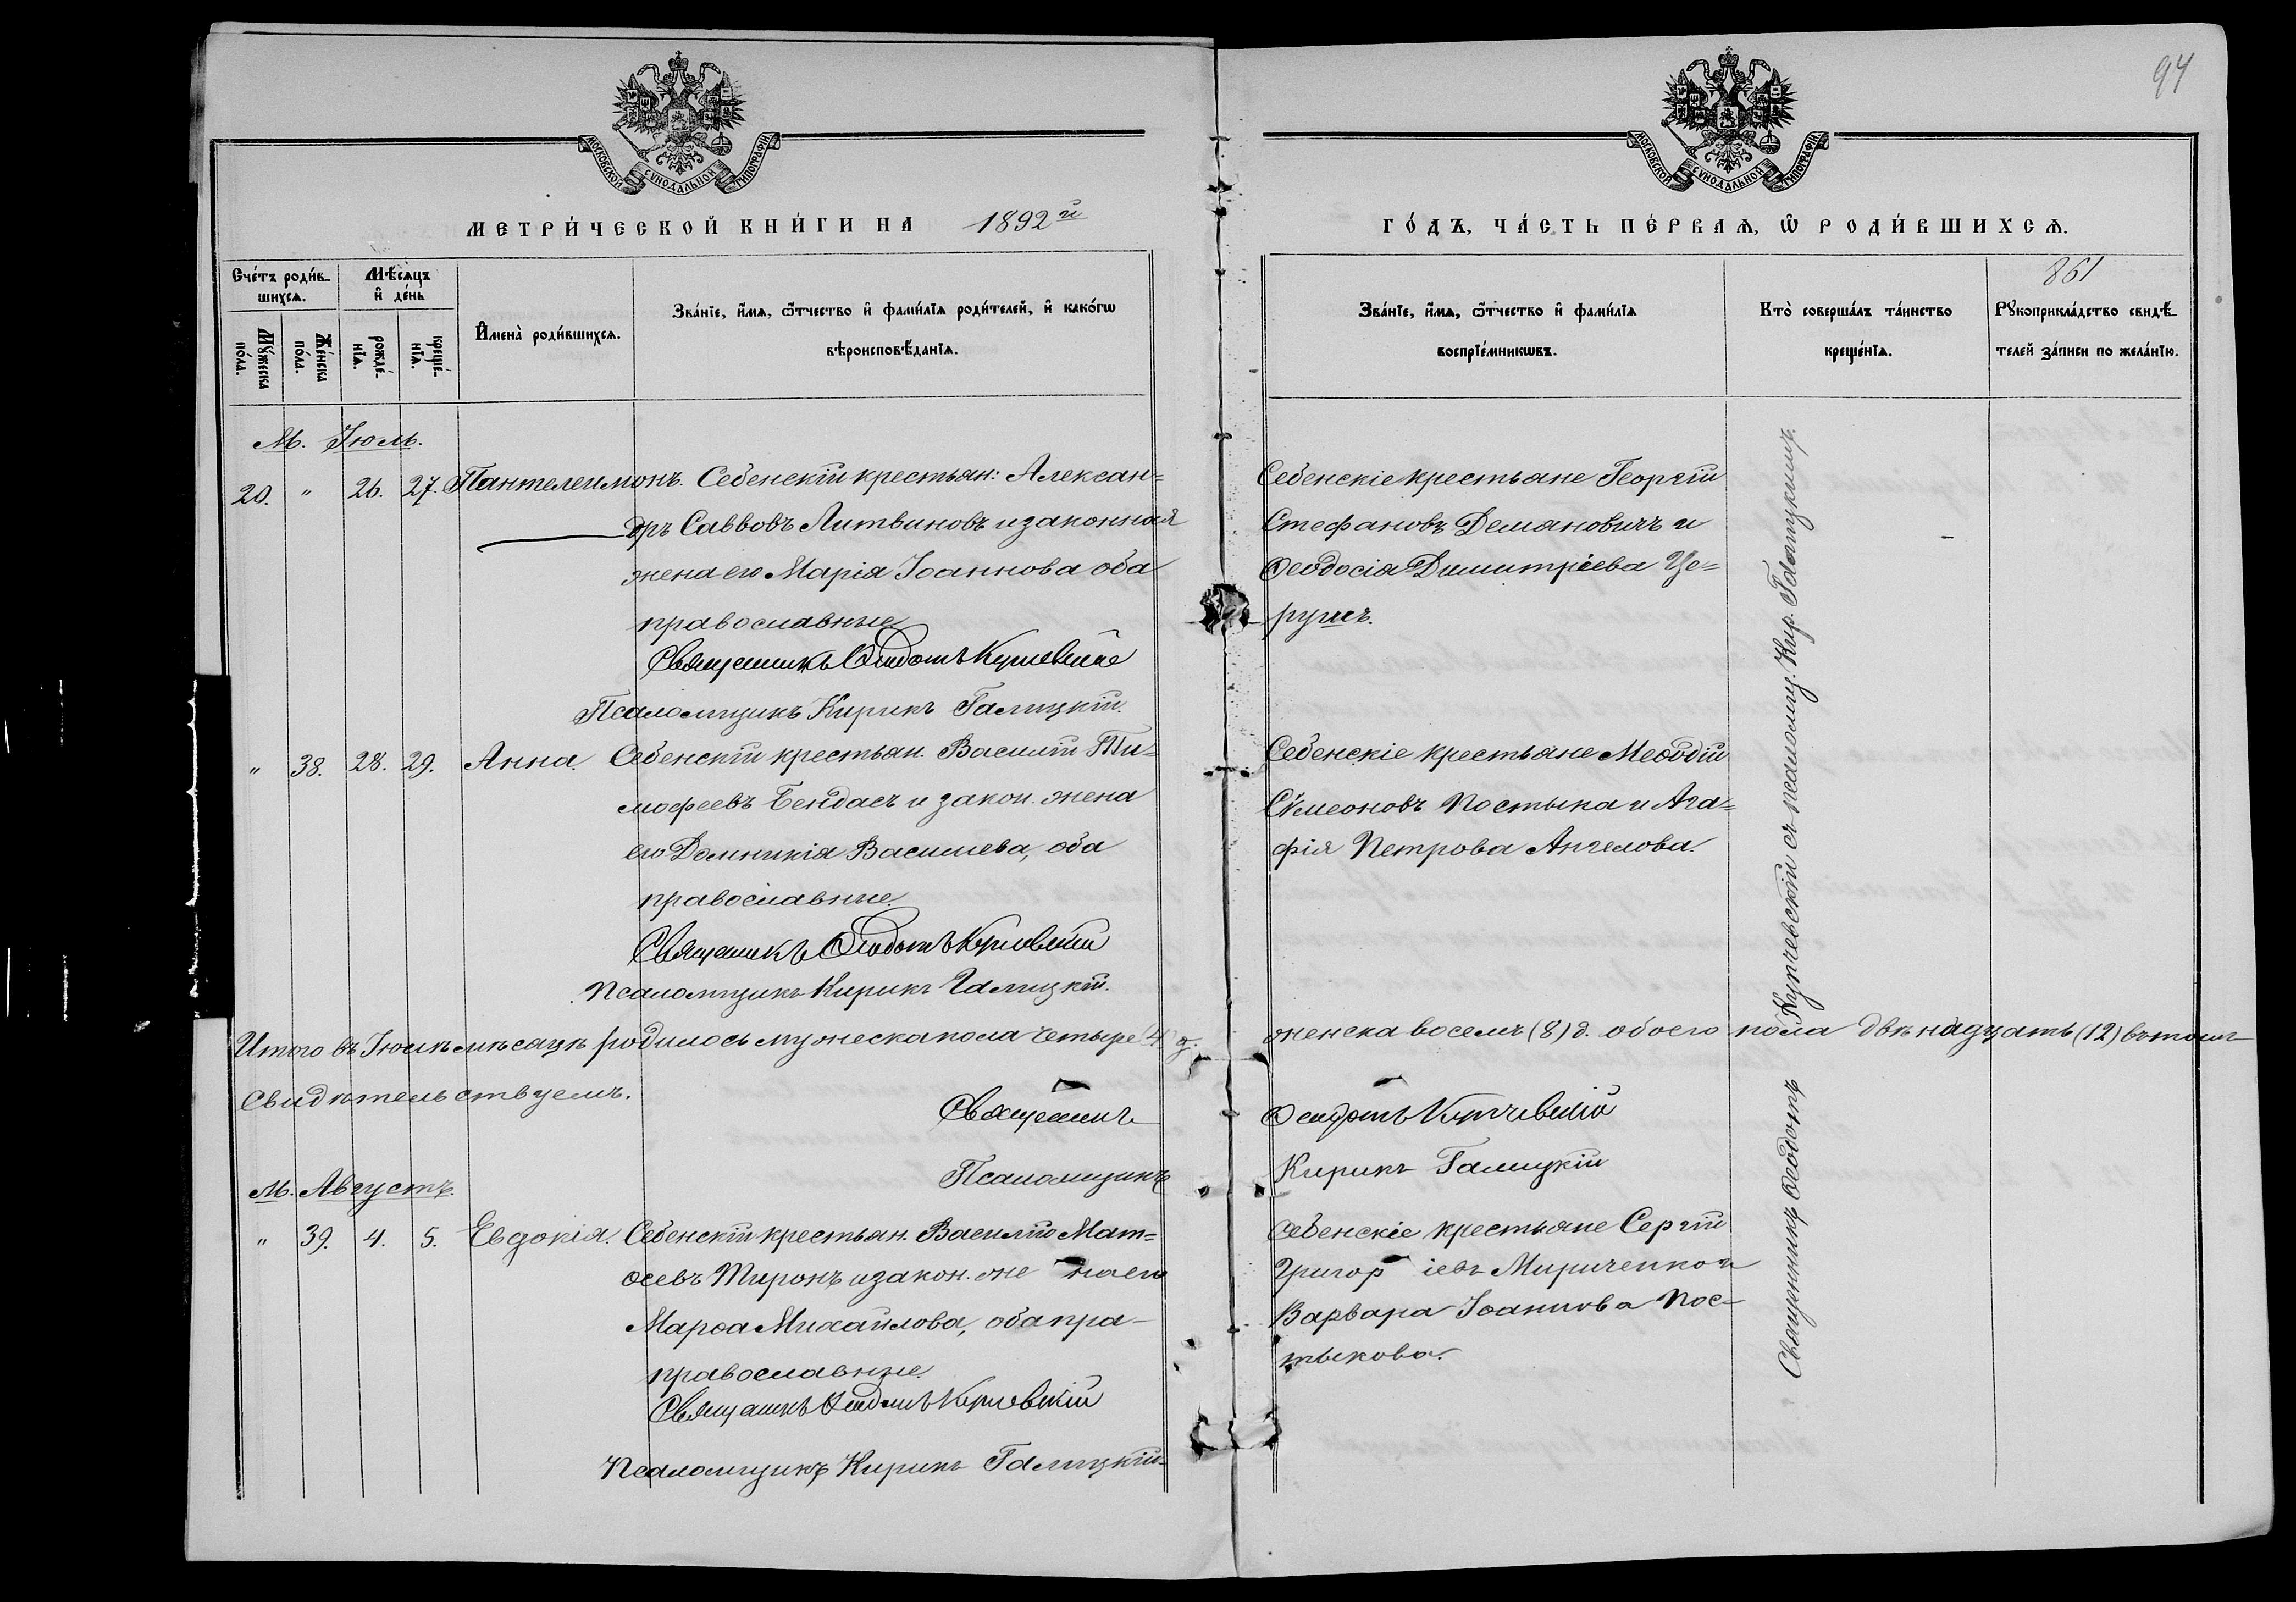 94
МОСКОВСКОЙ СѴНОДАЛЬНОЙ ТИПОГРАФІИ
МОСКОВСКОЙ СѴНОДАЛЬНОЙ ТИПОГРАФІИ
МЕТРИ́ЧЕСКОЙ КНИ́ГИ НА 1892й
ГО́ДЪ, ЧА́СТЬ ПЕ́РВАѦ, Ѿ РОДИ́ВШИХСѦ.
861
Сче́тъ роди́в-
шихсѧ.
Мѣ́сѧцъ
и҆ де́нь
Мꙋ́жеска
по́ла.
Же́нска
по́ла.
рожде́-
нїѧ.
креще́-
нїѧ.
И҆мена̀ роди́вшихсѧ.
Зва́нїе, и҆́мѧ, ѻ҆́тчество и҆ фами́лїѧ роди́телей, и҆ како́гѡ
вѣроисповѣ́данїѧ.
Зва́нїе, и҆́мѧ, ѻ҆́тчество и҆ фами́лїѧ
воспрїе́мникѡвъ.
Кто̀ соверша́лъ та́инство
креще́нїѧ.
Рꙋкоприкла́дство свидѣ́-
телей за́писи по жела́нїю.
М. Іюль.
20. " 26. 27. Пантелеимонъ. Себенскій крестьян: Алексан=
дръ Саввовъ Литвиновъ и законная
жена его Марія Іоаннова оба
православные
Священникъ Ѳеодотъ Купчевскій
Псаломщикъ Кирикъ Галицкій.
Себенскіе крестьяне Георгій
Стефановъ Демяновичъ и
Ѳеодосія Димитріева Це=
рушъ.
" 38. 28. 29. Анна. Себенскій крестьян. Василій Ти-
мофеевъ Бендасъ и закон. жена
его Домникія Васильева, оба
православные.
Священникъ Ѳеодотъ Купчевскій
Псаломщикъ Кирикъ Галицкій.
Себенскіе крестьяне Меѳодій
Сѵмеоновъ Постыка и Ага=
фія Петрова Ангелова.
Итого въ Іюлѣ мѣсяцѣ родилось мужеска пола четыре (4) д. женска восемь (8) д. обоего пола двѣнадцать (12) въ томъ
свидѣтельствуемъ.
Священникъ Ѳеодотъ Купчевскій
Псаломщикъ Кирикъ Галицкій
М. Августъ.
" 39. 4. 5. Евдокія. Себенскій крестьян. Василій Мат=
ѳеевъ Миронъ и закон. жена его
Марѳа Михайлова, оба пра-
православные.
Священникъ Ѳеодотъ Купчевскій
Псаломщикъ Кирикъ Галицкій.
Себенскіе крестьяне Сергій
Григоріевъ Мириченко и
Варвара Іоаннова Пос-
тыкова.
Священникъ Ѳеодотъ Купчевскій съ псаломщ. Кир. Галицкимъ.